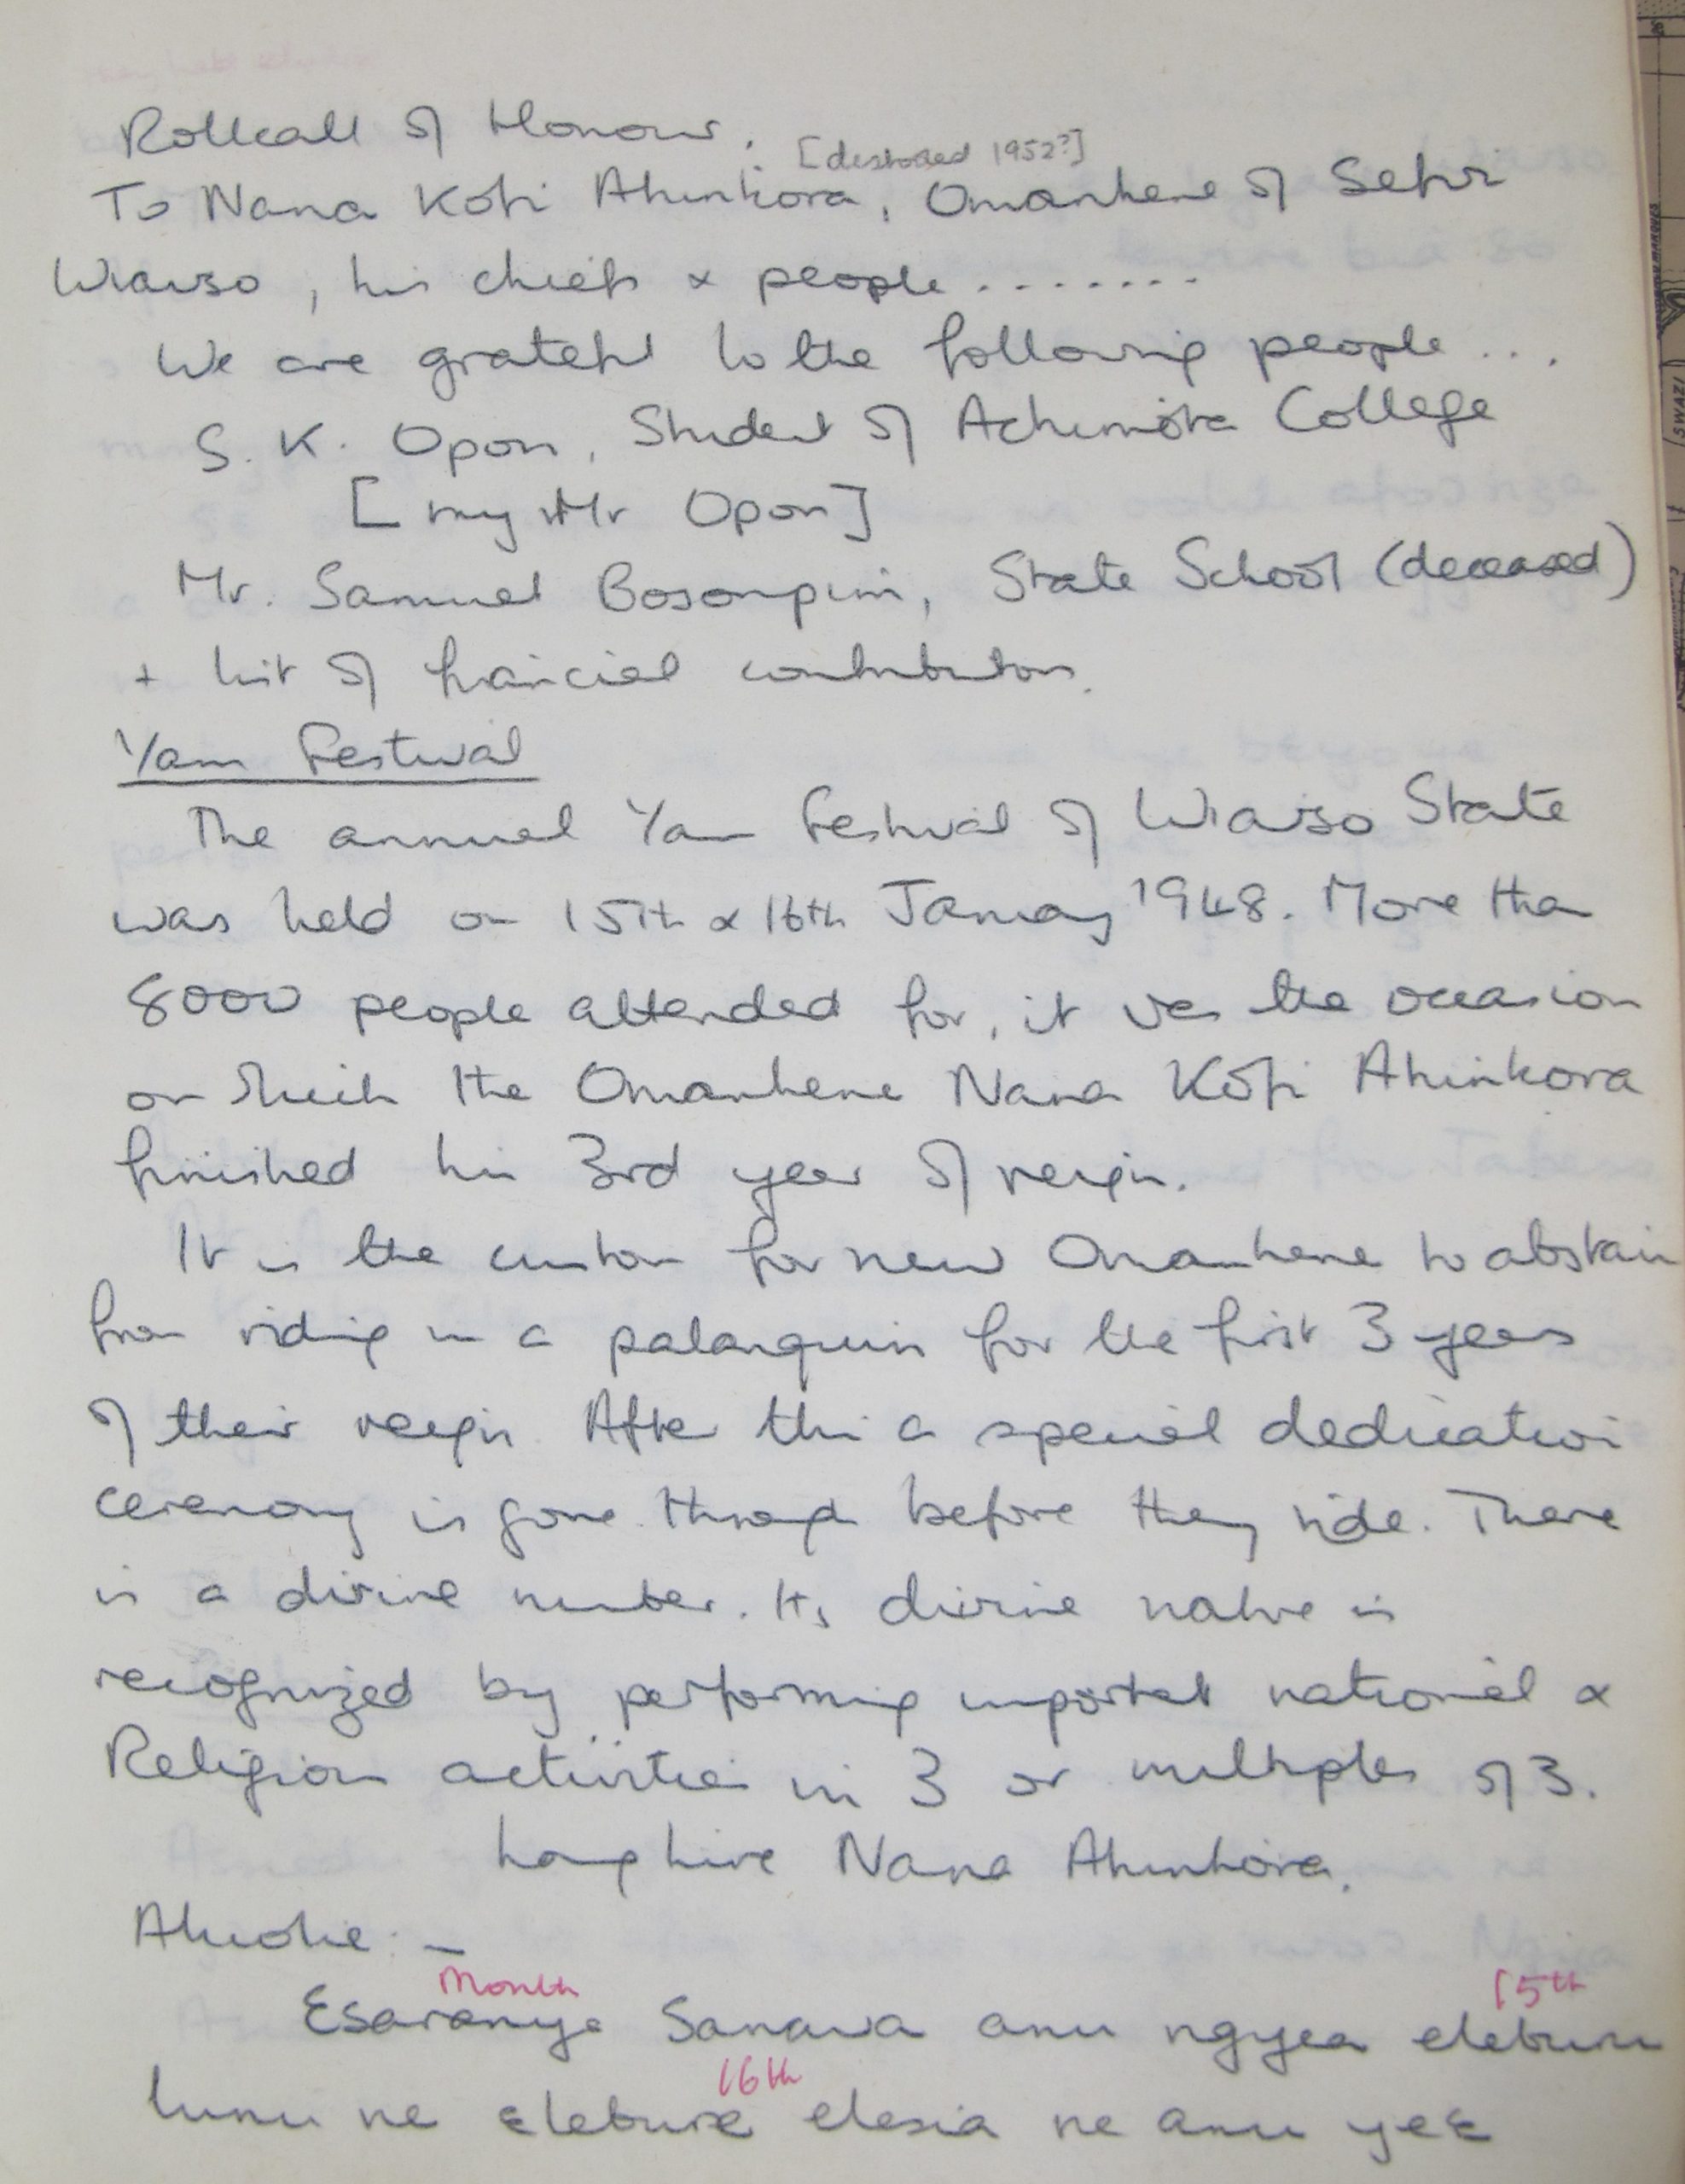 Rollcall of Honour.
[destooled 1952?]
To Nana Kofi Ahinkora, Omanhene of Sefwi
Wiawso, his chiefs & people ........
We are grateful to the following people ...
S. K. Opon, Student of Achimota College
[my Mr Opon]
Mr. Samuel Bosompim, State School (deceased)
+ list of financial contributors.
Yam Festival
The annual Yam Festival of Wiawso State
was held on 15th & 16th January 1948. More than
8000 people attended for, it was the occasion
on which the Omanhene Nana Kofi Ahinkora
finished his 3rd year of reign.
It is the custom for new Omanhene to abstain
from riding in a palanquin for the first 3 years
of their reign. After this a special dedication
ceremony is gone through before they ride. There
is a divine number. Its divine nature is
recognized by performing important national &
Religion activities in 3 or multiples of 3.
Long live Nana Ahinkora.
Aluolie: -
Month 15th
Esaranye Sanawa anu ngyea eleburu
16th
lunu ne ɛleburɛ elesia ne anu yeɛ